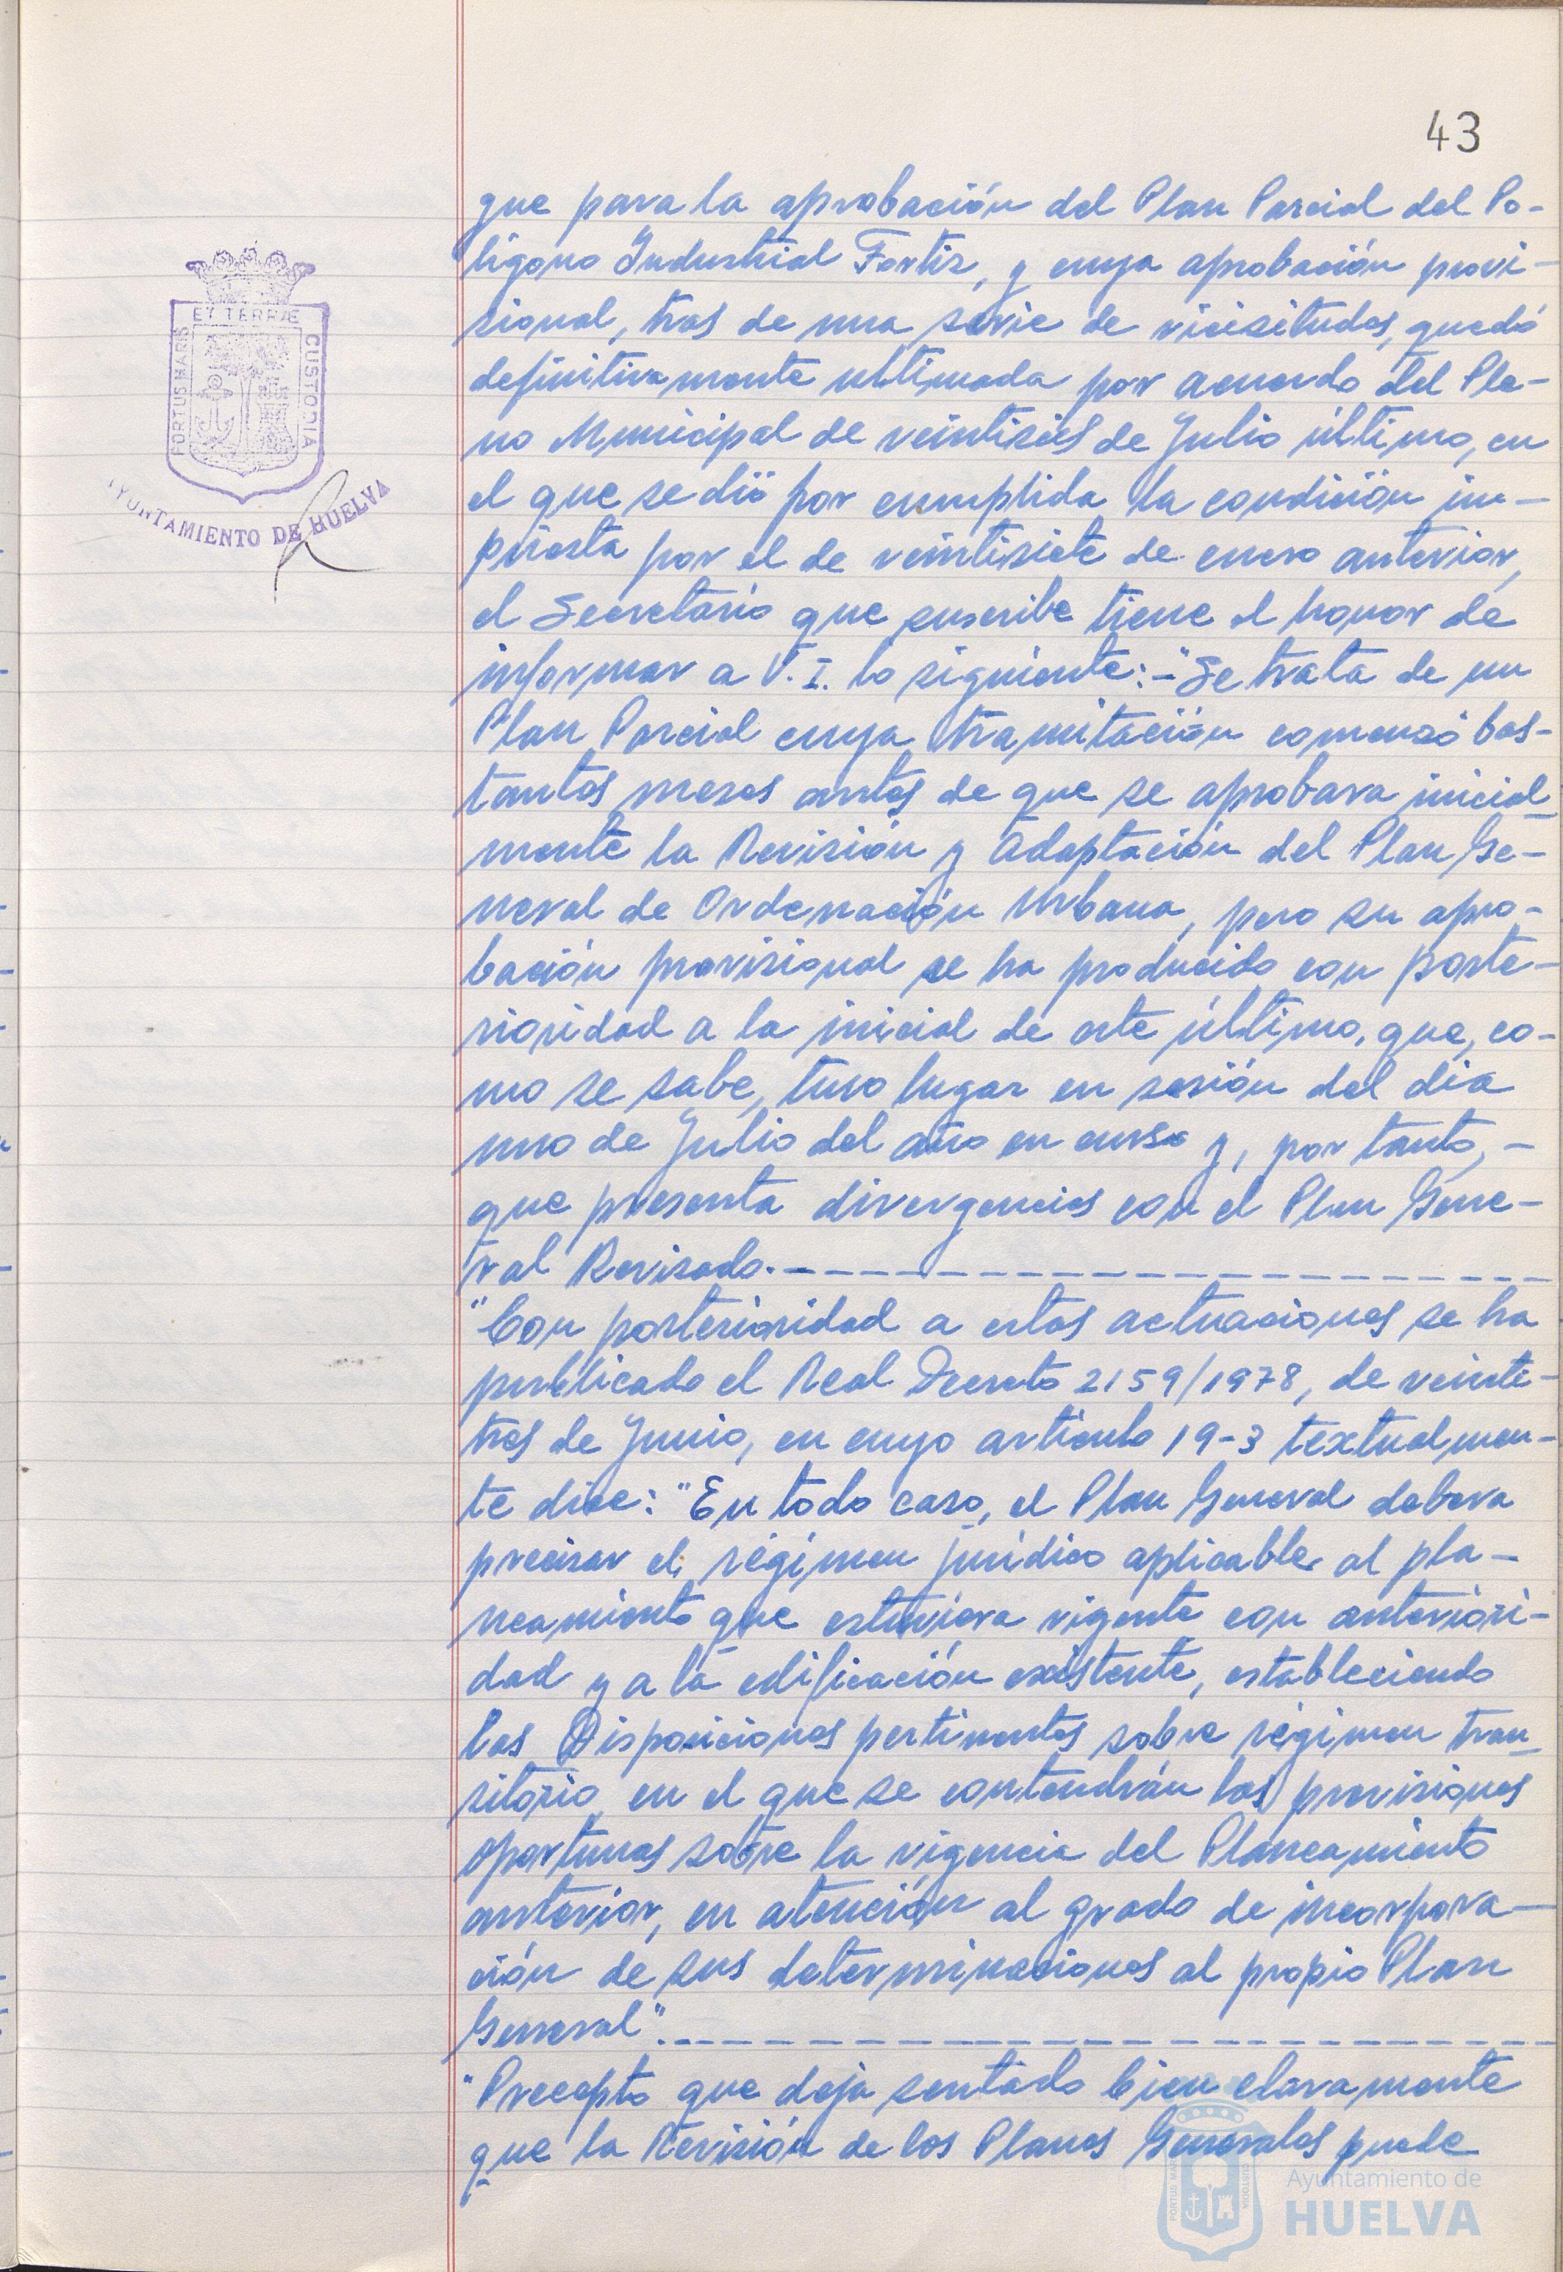 43
que para la aprobación del Plan Parcial del Po-
lígono Industrial Fortiz, y cuya aprobación provi-
sional, tras de una serie de vicisitudes, quedó
definitivamente ultimada por acuerdo del Ple-
no Municipal de veintiséis de Julio último, en
el que se dió por cumplida la condición im-
puesta por el de veintisiete de enero anterior,
el Secretario que suscribe tiene el honor de
informar a V. I. lo siguiente:-"Se trata de un
Plan Parcial cuya tramitación comenzó bas-
tantes meses antes de que se aprobara inicial
mente la Revisión y Adaptación del Plan Ge-
neral de Ordenación Urbana, pero su apro-
bación provisional se ha producido con poste-
rioridad a la inicial de este último, que, co-
mo se sabe, tuvo lugar en sesión del dia
uno de Julio del año en curso y, por tanto, -
que presenta divergencias con el Plan Gene-
ral Revisado.-
"Con posterioridad a estas actuaciones se ha
publicado el Real Decreto 2159/1978, de veinti-
tres de Junio, en cuyo articulo 19-3 textualmen-
te dice: "En todo caso, el Plan General debera
precisar el régimen jurídico aplicable al pla-
neamiento que estuviera vigente con anteriori-
dad y a la edificación existente, estableciendo
las Disposiciones pertinentes sobre régimen tran
sitorio en el que se contendrán las previsiones
oportunas sobre la vigencia del Planeamiento
anterior, en atención al grado de incorpora-
ción de sus determinaciones al propio Plan
General".-
"Precepto que deja sentado bien claramente
que la Revisión de los Planes Generales puede
ET TERRÆ
PORTUS MARIS
CUSTODIA
AYUNTAMIENTO DE HUELVA
Ayuntamiento de
HUELVA